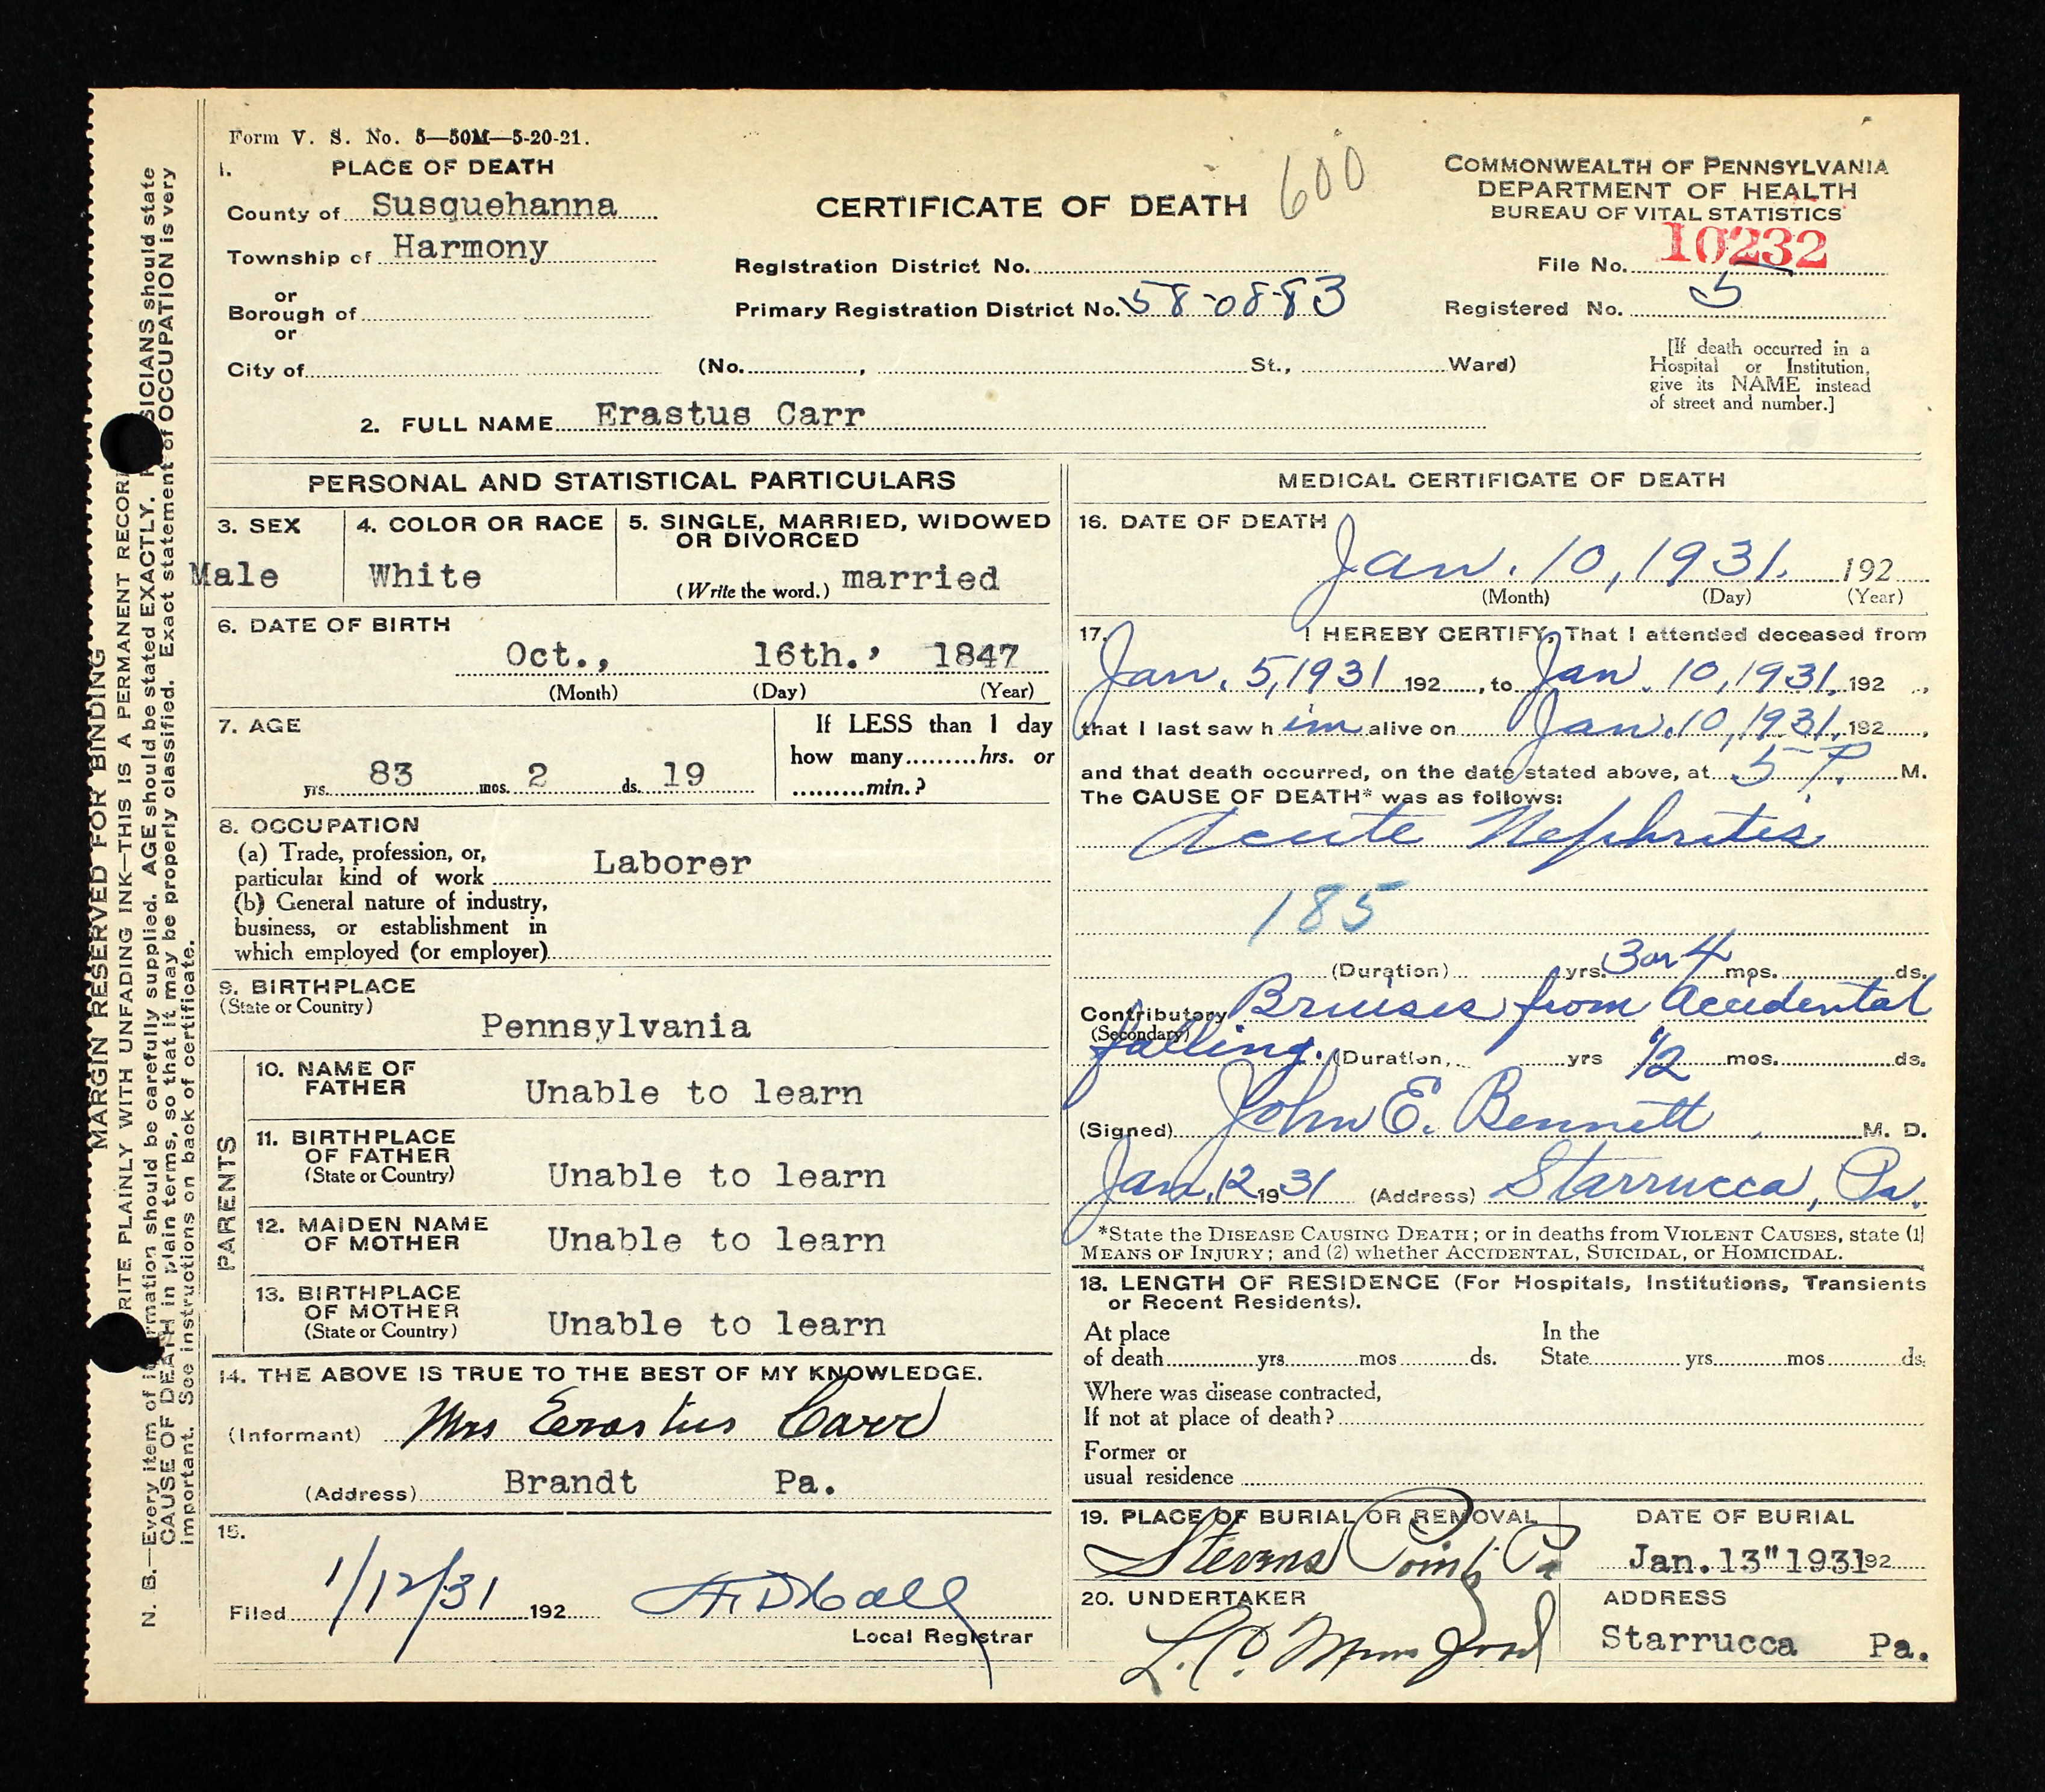 Form V. S. No. 5—50M—5-20-21.
1. PLACE OF DEATH
County of Susquehanna
Township of Harmony
or
Borough of
or
City of
CERTIFICATE OF DEATH
600
Registration District No.
Primary Registration District No. 58-08-83
(No. , St., Ward)
COMMONWEALTH OF PENNSYLVANIA
DEPARTMENT OF HEALTH
BUREAU OF VITAL STATISTICS
File No. 10232
Registered No. 5
[If death occurred in a
Hospital or Institution,
give its NAME instead
of street and number.]
2. FULL NAME Erastus Carr
PERSONAL AND STATISTICAL PARTICULARS
3. SEX
Male
4. COLOR OR RACE
White
5. SINGLE, MARRIED, WIDOWED
OR DIVORCED
(Write the word.) married
6. DATE OF BIRTH
Oct., 16th., 1847
(Month) (Day) (Year)
7. AGE
yrs. 83 mos. 2 ds. 19
If LESS than 1 day
how many hrs. or
min.?
8. OCCUPATION
(a) Trade, profession, or,
particular kind of work Laborer
(b) General nature of industry,
business, or establishment in
which employed (or employer)
9. BIRTHPLACE
(State or Country)
Pennsylvania
PARENTS
10. NAME OF
FATHER
Unable to learn
11. BIRTHPLACE
OF FATHER
(State or Country)
Unable to learn
12. MAIDEN NAME
OF MOTHER
Unable to learn
13. BIRTHPLACE
OF MOTHER
(State or Country)
Unable to learn
14. THE ABOVE IS TRUE TO THE BEST OF MY KNOWLEDGE.
(Informant) Mrs Erastus Carr
(Address) Brandt Pa.
15.
Filed 1/12/31 192
Local Registrar
MEDICAL CERTIFICATE OF DEATH
16. DATE OF DEATH
Jan. 10, 1931. 192
(Month) (Day) (Year)
17. I HEREBY CERTIFY, That I attended deceased from
Jan. 5, 1931 192 , to Jan. 10, 1931. 192 ,
that I last saw h im alive on Jan. 10, 1931. 192 ,
and that death occurred, on the date stated above, at 5 P. M.
The CAUSE OF DEATH* was as follows:
Acute Nephritis
185
(Duration) yrs. 3 or 4 mos. ds.
Contributory Bruises from Accidental
(Secondary)
falling. (Duration, yrs 1/2 mos. ds.
(Signed) John E. Bennett, M. D.
Jan. 12 1931 (Address) Starrucca, Pa.
*State the DISEASE CAUSING DEATH; or in deaths from VIOLENT CAUSES, state (1)
MEANS OF INJURY; and (2) whether ACCIDENTAL, SUICIDAL, or HOMICIDAL.
18. LENGTH OF RESIDENCE (For Hospitals, Institutions, Transients
or Recent Residents).
At place
of death yrs mos ds.
In the
State yrs mos ds.
Where was disease contracted,
If not at place of death?
Former or
usual residence
19. PLACE OF BURIAL OR REMOVAL
Stevens Point Pa
DATE OF BURIAL
Jan. 13" 1931 92
20. UNDERTAKER
L. P. Mumford
ADDRESS
Starrucca Pa.
MARGIN RESERVED FOR BINDING
RITE PLAINLY WITH UNFADING INK—THIS IS A PERMANENT RECOR
N. B.—Every item of information should be carefully supplied. AGE should be stated EXACTLY. PHYSICIANS should state
CAUSE OF DEATH in plain terms, so that it may be properly classified. Exact statement of OCCUPATION is very
important. See instructions on back of certificate.